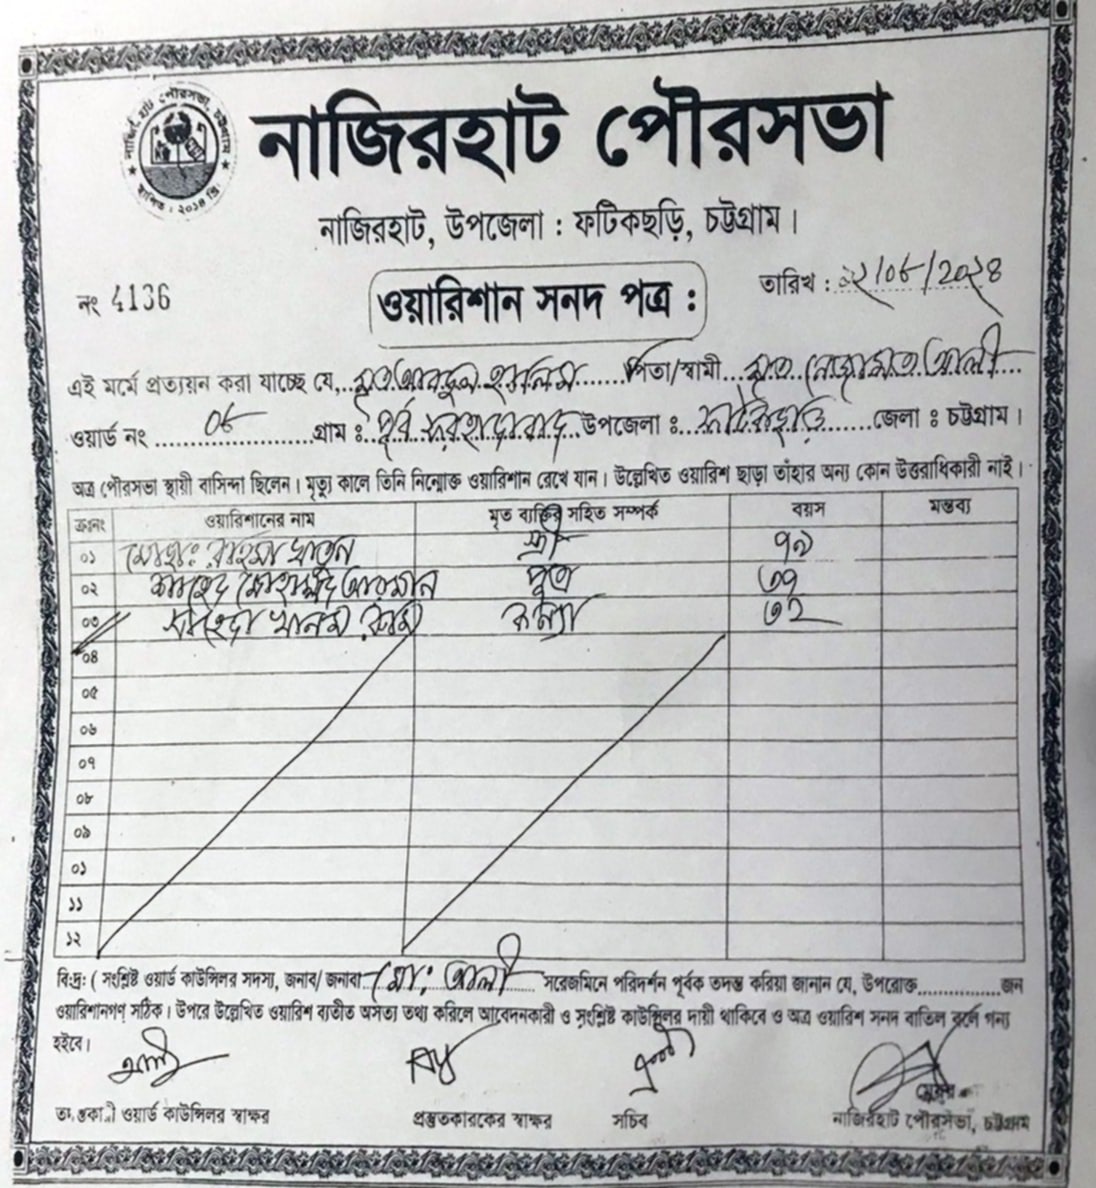 নাজিরহাট পৌরসভা, চট্টগ্রাম
স্থাপিত : ২০১৪ খ্রি:
নাজিরহাট পৌরসভা
নাজিরহাট, উপজেলা : ফটিকছড়ি, চট্টগ্রাম।
নং 4136
ওয়ারিশান সনদ পত্র :
তারিখ : ১২/০৮/২০২৪
এই মর্মে প্রত্যয়ন করা যাচ্ছে যে, মৃত আবদুল হালিম পিতা/স্বামী মৃত নেজামত আলী
ওয়ার্ড নং ০৮ গ্রাম : পূর্ব ফরহাদাবাদ উপজেলা : ফটিকছড়ি জেলা : চট্টগ্রাম।
অত্র পৌরসভা স্থায়ী বাসিন্দা ছিলেন। মৃত্যু কালে তিনি নিম্মোক্ত ওয়ারিশান রেখে যান। উল্লেখিত ওয়ারিশ ছাড়া তাঁহার অন্য কোন উত্তরাধিকারী নাই।
ক্রঃনং ওয়ারিশানের নাম মৃত ব্যক্তির সহিত সম্পর্ক বয়স মন্তব্য
০১ মোছা: রহিমা খাতুন স্ত্রী ৭৯
০২ জাহেদ মোহাম্মদ আরমান পুত্র ৩৭
০৩ জাহেদা খানম কন্যা ৩২
০৪
০৫
০৬
০৭
০৮
০৯
০১
১১
১২
বি:দ্র: ( সংশ্লিষ্ট ওয়ার্ড কাউন্সিলর সদস্য, জনাব/ জনাবা মো: আলী সরেজমিনে পরিদর্শন পূর্বক তদন্ত করিয়া জানান যে, উপরোক্ত..............জন
ওয়ারিশানগণ সঠিক। উপরে উল্লেখিত ওয়ারিশ ব্যতীত অসত্য তথ্য করিলে আবেদনকারী ও সংশ্লিষ্ট কাউন্সিলর দায়ী থাকিবে ও অত্র ওয়ারিশ সনদ বাতিল বলে গন্য
হইবে।
তদন্তকারী ওয়ার্ড কাউন্সিলর স্বাক্ষর প্রস্তুতকারকের স্বাক্ষর সচিব মেয়র
নাজিরহাট পৌরসভা, চট্টগ্রাম